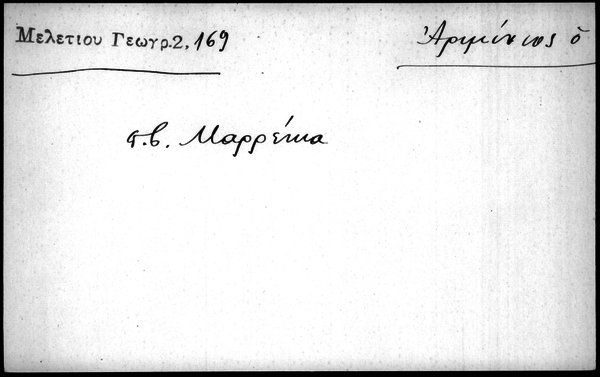 Μελετίου Γεωγρ.2, 169
Ἀριμίνιος ὁ
σ.β. Μαρρέκια